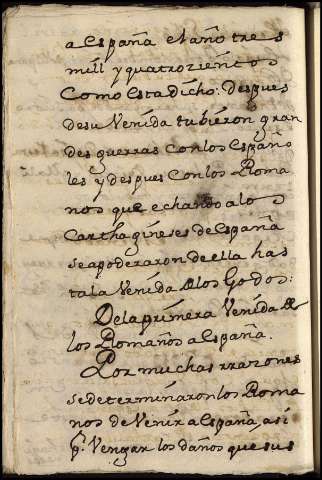 a España el año tres
mill y quatrozientos
Como esta dicho: despues
de su Venida tubieron gran
des guerras con los Españo
les y despues Con los Roma
nos que echando a los
Carthagineses de España
se apoderaron de ella has
ta la Venida de los Godos:
De la primera Venida de
los Romanos a España.
Por muchas rrazones
se determinaron los Roma
nos de Venir a España, asi
p.ª Vengar los daños que sus